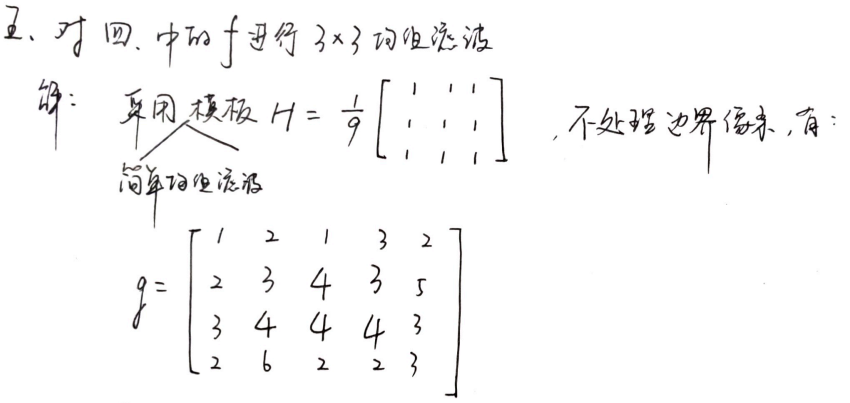 五、对 四、中的 f 进行 3×3 均值滤波
解: 采用模板 H = 1/9 [ 1 1 1
1 1 1
1 1 1 ] , 不处理边界像素, 有:
简单均值滤波
g = [ 1 2 1 3 2
2 3 4 3 5
3 4 4 4 3
2 6 2 2 3 ]